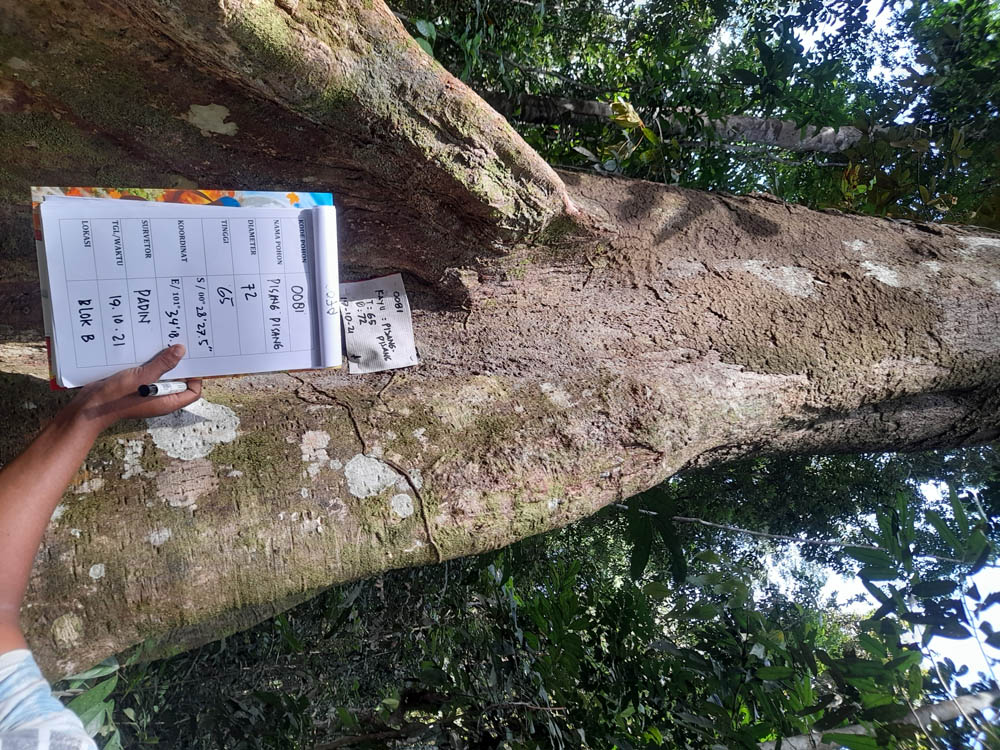 0081
KAYU : PISANG
PISANG
T : 65
D : 72
19-10-21
KODE POHON 0081
NAMA POHON PISANG PISANG
DIAMETER 72
TINGGI 65
KOORDINAT S / 00° 28'27.5"
E/ 101° 34'18.
SURVETOR PADIN
TGL/WAKTU 19.10.21
LOKASI BLOK B